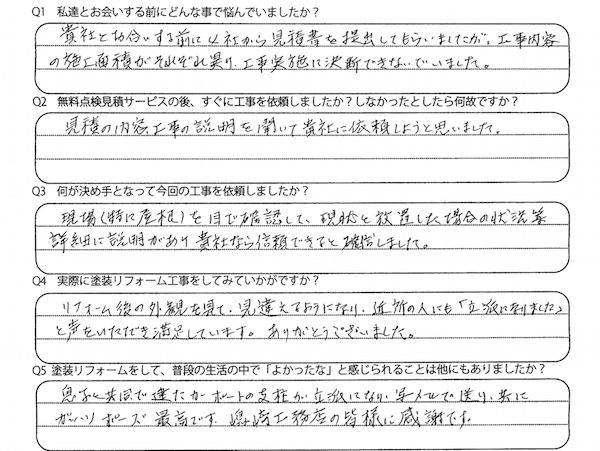 Q1 私達とお会いする前にどんな事で悩んでいましたか？
貴社と お会いする前に 4社から見積書を提出してもらいましたが、工事内容
の施工面積がそれぞれ異り、工事実施に決断できないでいました。
Q2 無料点検見積サービスの後、すぐに工事を依頼しましたか？しなかったとしたら何故ですか？
見積の内容、工事の説明を聞いて貴社に依頼しようと思いました。
Q3 何が決め手となって今回の工事を依頼しましたか？
現場(特に屋根)を目で確認して、現状と放置した場合の状況等
詳細に説明があり 貴社なら信頼できると確信しました。
Q4 実際に塗装リフォーム工事をしてみていかがですか？
リフォーム後の外観を見て、見違えるようになり、近所の人にも「立派になりました」
と声をいただき満足しています。ありがとうございました。
Q5 塗装リフォームをして、普段の生活の中で「よかったな」と感じられることは他にもありましたか？
息子と共同で建たカーポートの支柱が立派になり、写メールで送り、共に
ガッツポーズ 最高です。 工務店の皆様に感謝です。